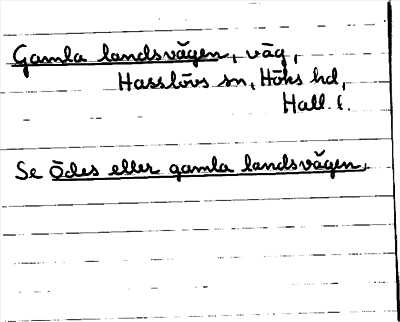 Gamla landsvägen, väg,
Hasslövs sn, Höks hd,
Hall. l.
Se Ödes eller gamla landsvägen.